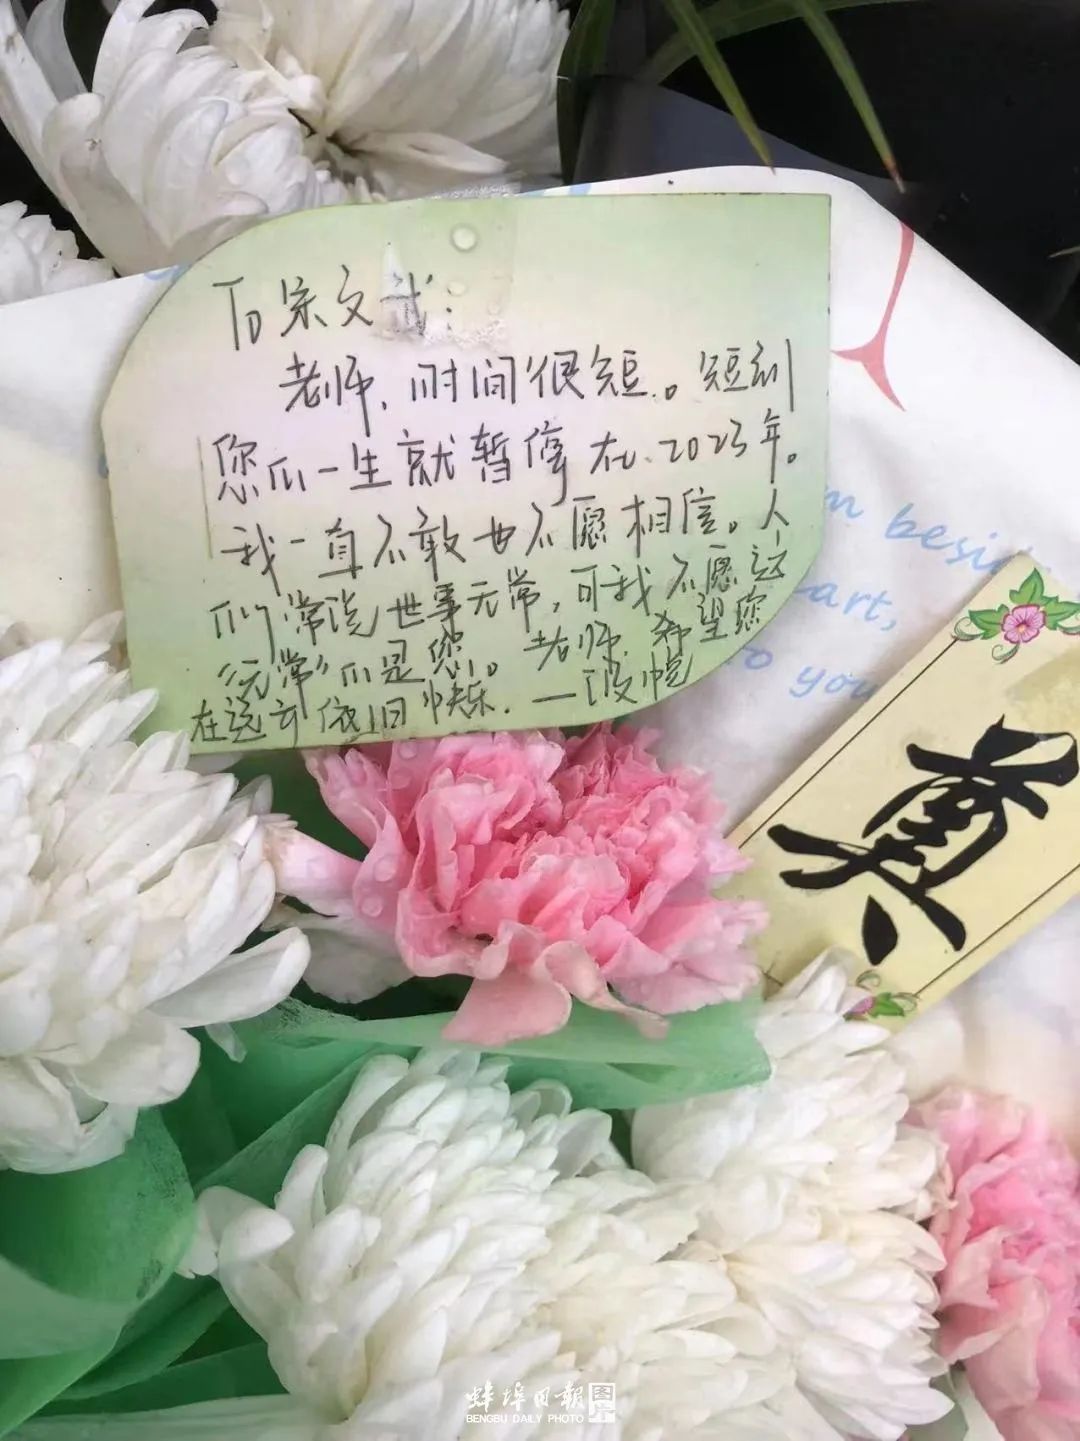 To 宋文武:
老师,时间很短。短到
您的一生就暂停在2023年。
我一直不敢也不愿相信。人
们常说世事无常,可我不愿这
“无常”的是您。老师,希望您
在远方依旧快乐.
m besid
art,
o you
奠
蚌埠日報 图片
BENGBU DAILY PHOTO